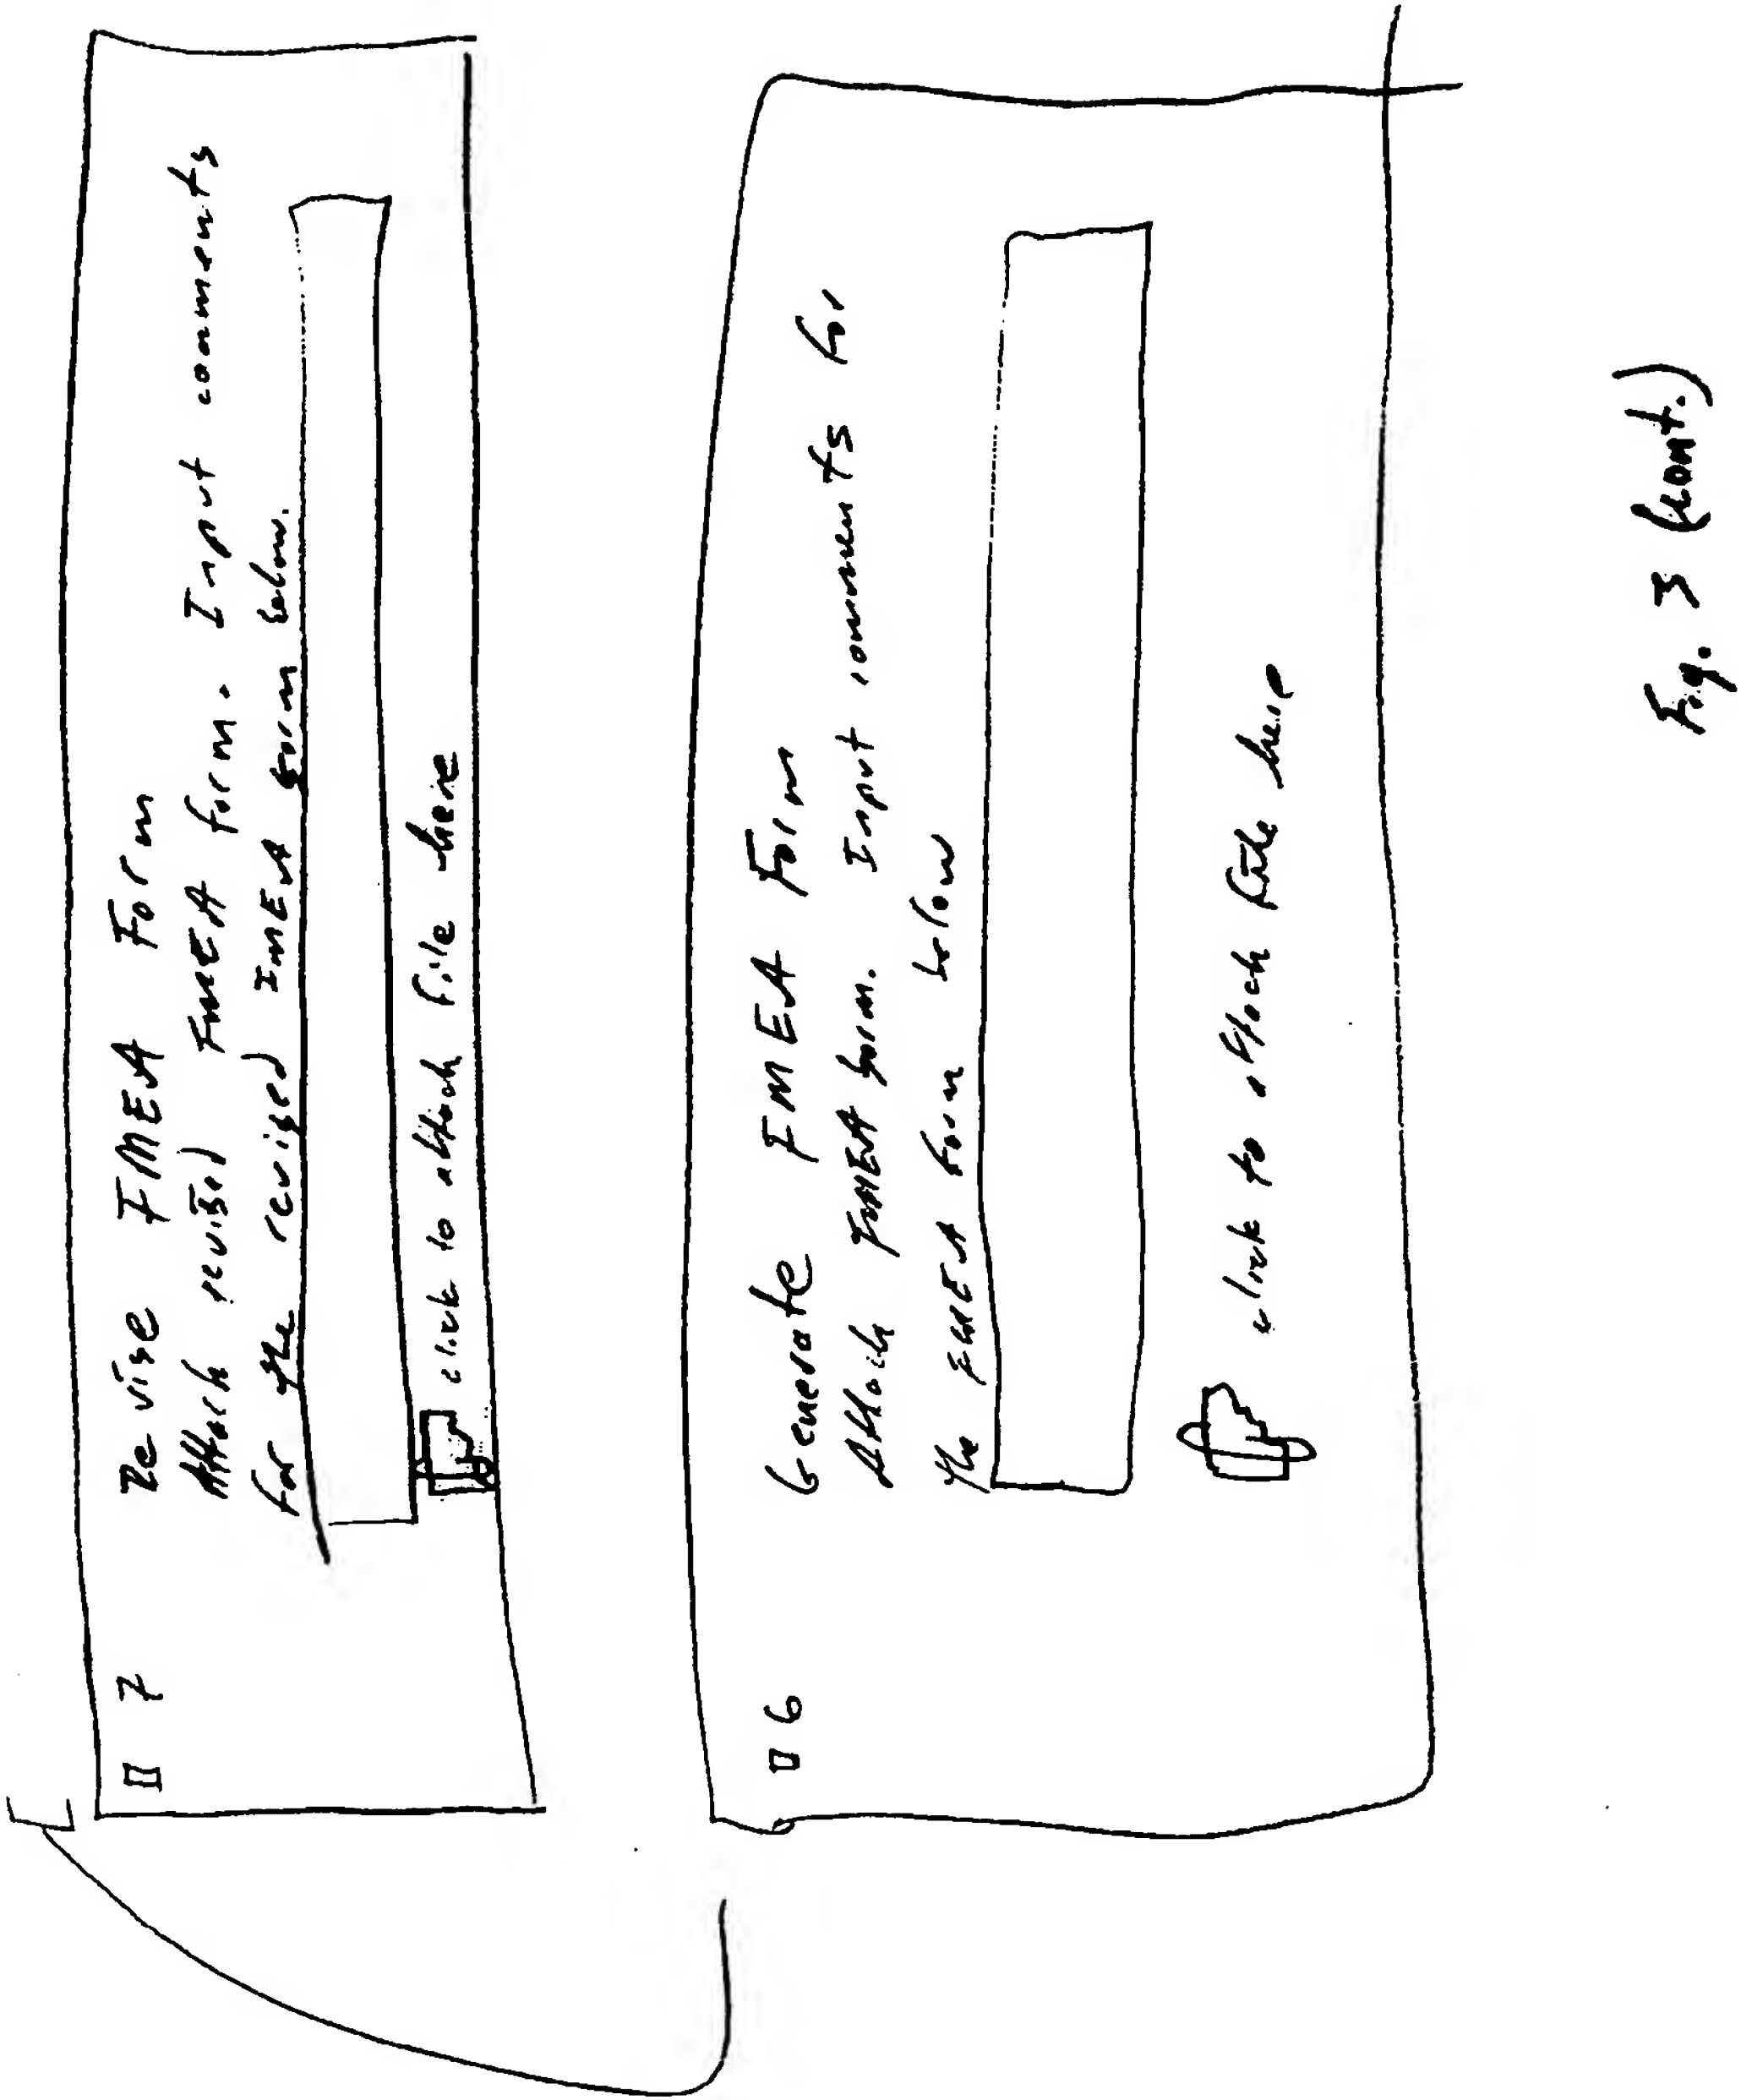 □ 7 Revise FMEA Form
Attach revised FMEA form. Input comments
for the revised FMEA form below.
click to attach file here
□ 6 Generate FMEA Form
Attach FMEA form. Input comments for
the FMEA form below
click to attach file here
Fig. 3 (cont.)